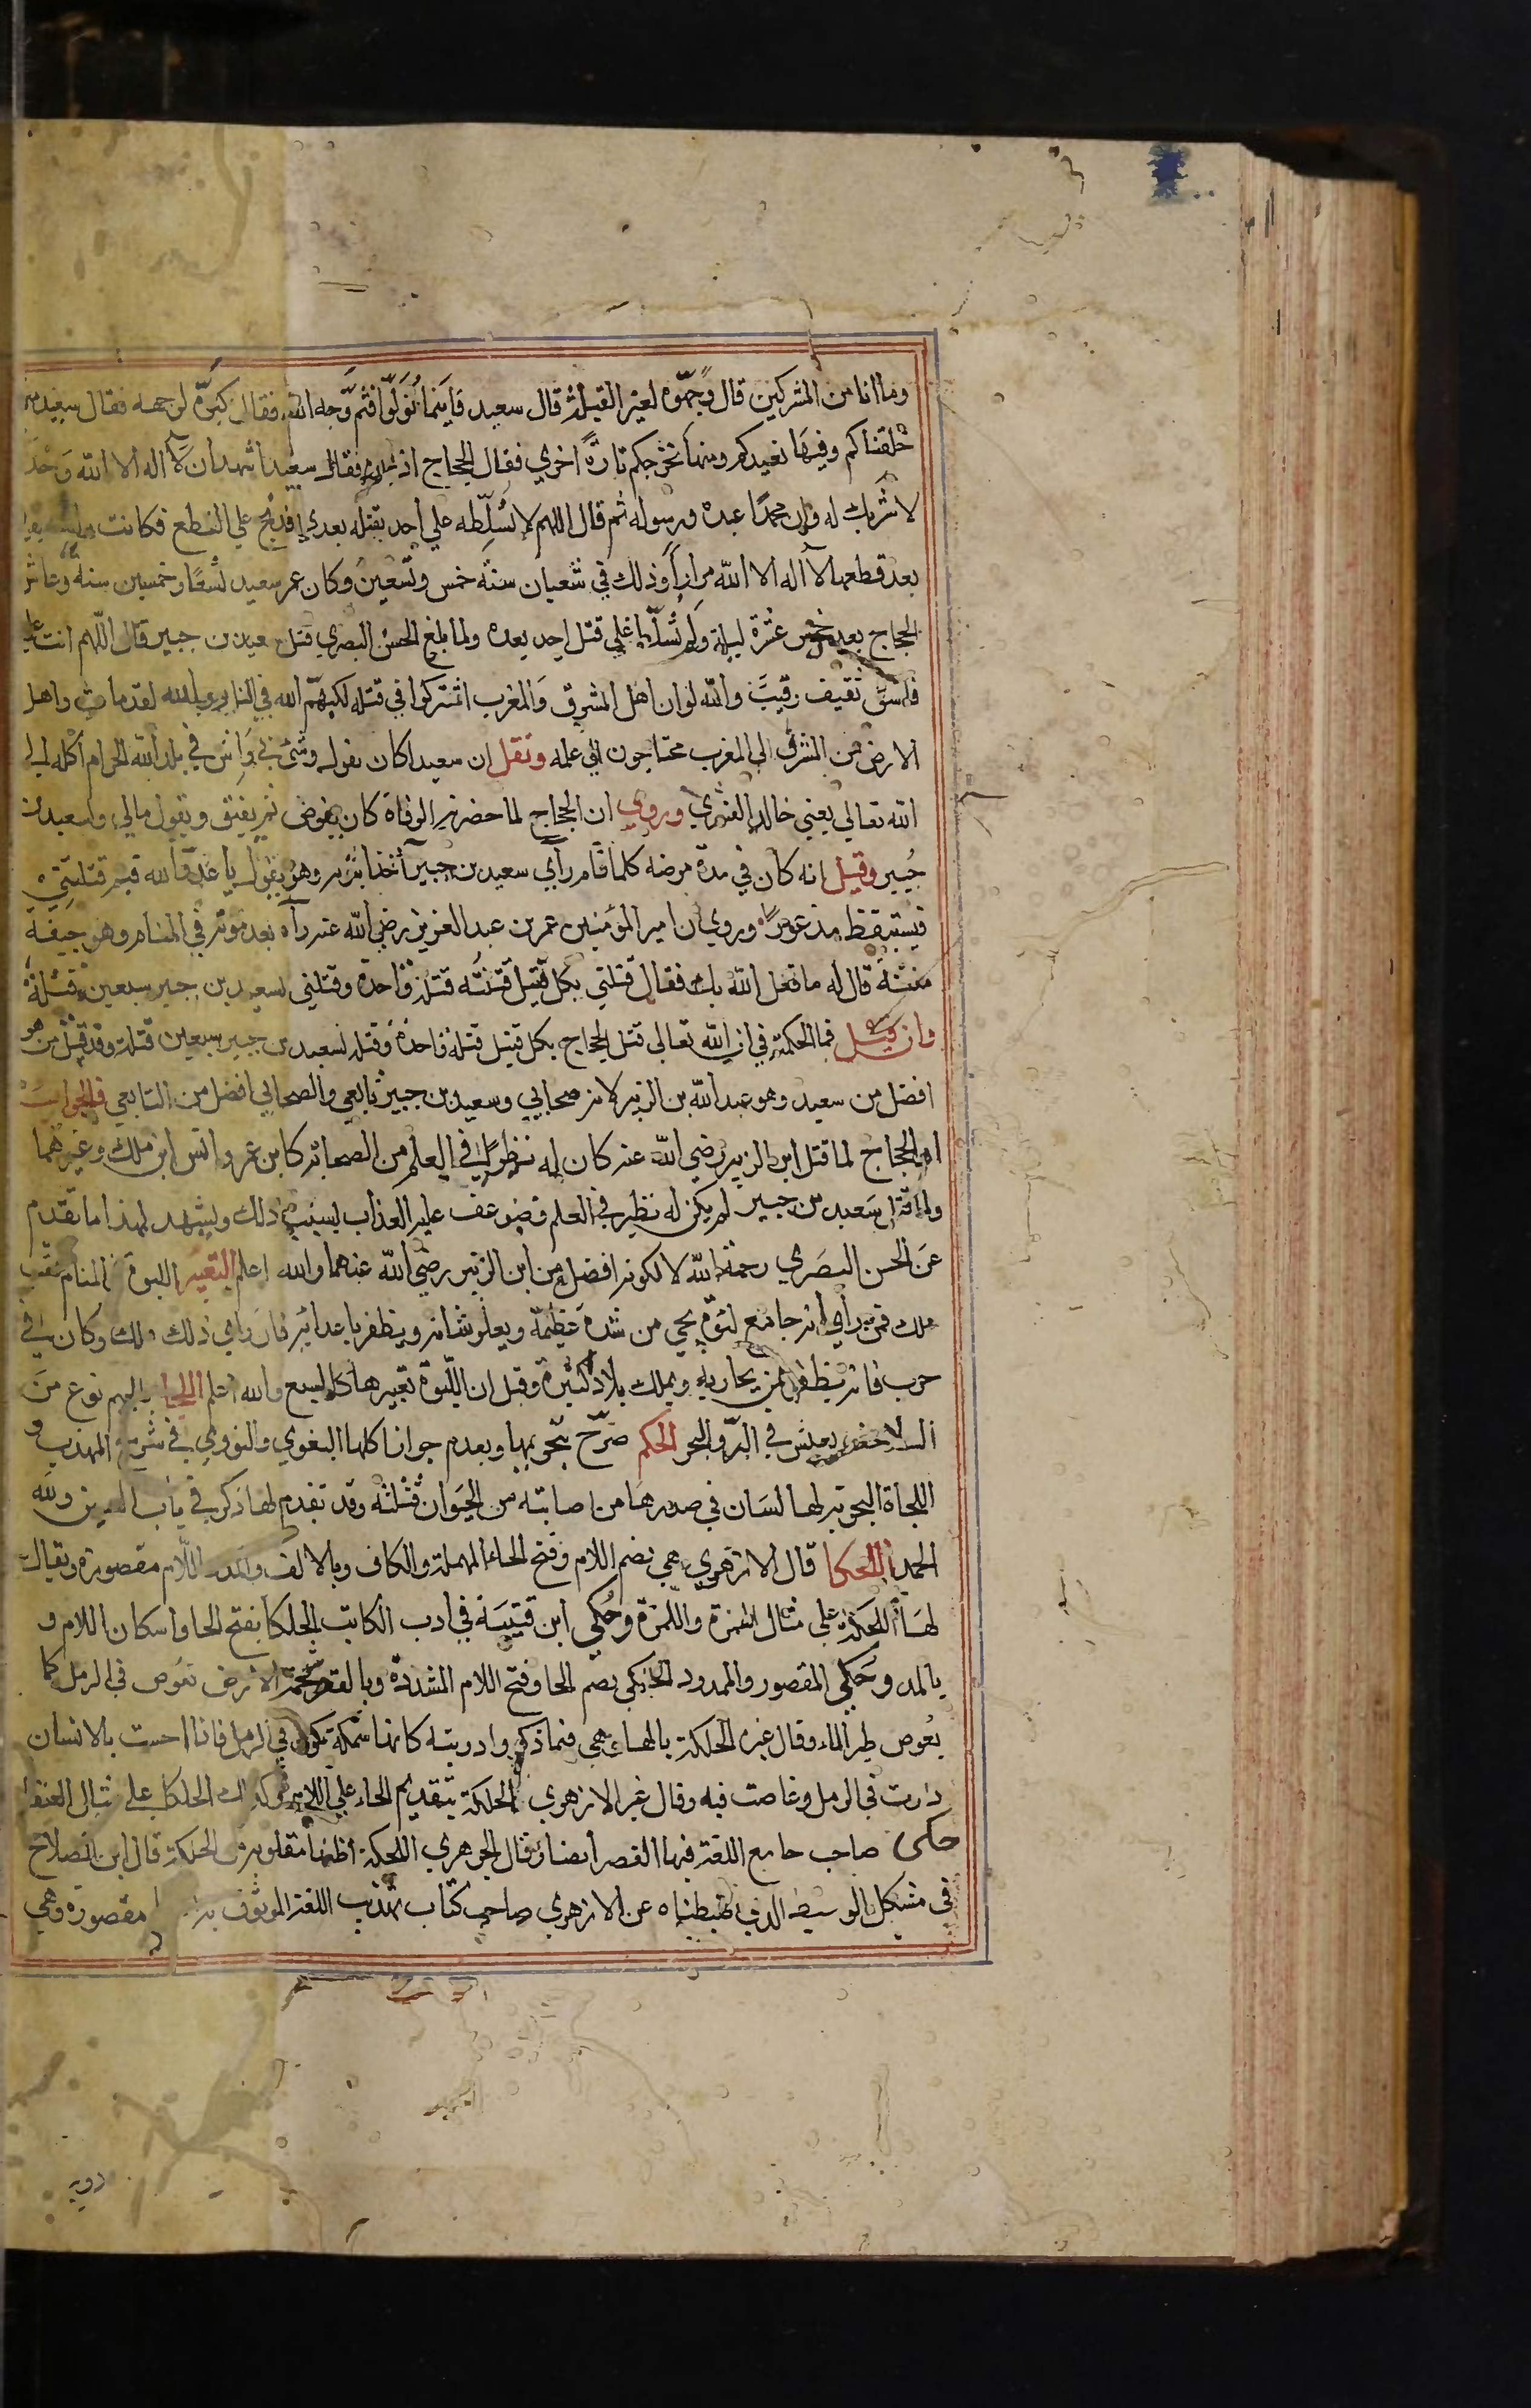 وما انا من المشركين قال وجهوه لغير القبلة قال سعيد فاينما تولوا فثم وجه الله فقال كبوه لوجهه فقال سعيد منها
خلقناكم وفيها نعيدكم ومنها نخرجكم تارة اخري فقال الحجاج اذبحوه فقال سعيد اشهد ان لا اله الا الله وحده
لا شريك له وان محمدا عبده ورسوله ثم قال اللهم لا تسلطه علي احد يقتله بعدي فذبح علي النطع فكانت
بعد قطعها لا اله الا الله مرارا وذلك في شعبان سنة خمس وتسعين وكان عمر سعيد تسعا وخمسين سنة وعاش
الحجاج بعده خمس عشرة ليلة ولم يسلط علي قتل احد بعده ولما بلغ الحسن البصري قتل سعيد بن جبير قال اللهم انت علي
فاسق ثقيف رقيب والله لو ان اهل المشرق والمغرب اشتركوا في قتله لكبهم الله في النار والله لقد مات واهل
الارض من المشرق الي المغرب محتاجون الي علمه ونقل ان سعيدا كان يقول وشي بي واش في بلد الله الحرام اكله الي
الله تعالي يعني خالد القسري وروي ان الحجاج لما حضرته الوفاة كان يغوص ثم يفيق ويقول مالي ولسعيد بن
جبير وقيل انه كان في مدة مرضه كلما نام رأي سعيد بن جبير آخذا بثوبه وهو يقول يا عدو الله فيم قتلتني
فيستيقظ مذعورا وروي ان امير المؤمنين عمر بن عبد العزيز رضي الله عنه رآه بعد موته في المنام وهو جيفة
منتنة قال له ما فعل الله بك فقال قتلني بكل قتيل قتلته قتلة واحدة وقتلني بسعيد بن جبير سبعين قتلة
وان قيل فما الحكمة في ان الله تعالي قتل الحجاج بكل قتيل قتلة واحدة وقتله بسعيد بن جبير سبعين قتلة وقد قتل من هو
افضل من سعيد وهو عبد الله بن الزبير لانه صحابي وسعيد بن جبير تابعي والصحابي افضل من التابعي فالجواب
ان الحجاج لما قتل ابن الزبير رضي الله عنه كان له نظراء في العلم من الصحابة كابن عمر وانس ابن ملك وغيرهما
ولما قتل سعيد بن جبير لم يكن له نظير في العلم فضوعف عليه العذاب بسبب ذلك ويشهد لهذا ما تقدم
عن الحسن البصري رحمه الله لا لكونه افضل من ابن الزبير رضي الله عنهما والله اعلم التعبير اللبوة في المنام بنت
ملك فمن رأي انه جامع لبوة نجي من شدة عظيمة ويعلو شانه ويظفر باعدائه فان راي ذلك ملك وكان في
حرب فانه يظفر بمن يحاربه ويملك بلادا كثيرة وقيل ان اللبوة تعبيرها كالسبع والله اعلم اللجاء بالجيم نوع من
السلاحف يعيش في البر والبحر الحكم صرح بتحريمها وبعدم جواز اكلها البغوي والنووي في شرح المهذب و
اللجاة البحرية لها لسان في صدرها من اصابته من الحيوان قتلته وقد تقدم لها ذكر في باب السين ولله
الحمد اللحكا قال الازهري هي بضم اللام وفتح الحاء المهملة والكاف وبالالف واللام مقصورة ويقال
لها اللحكة علي مثال الهمزة واللمزة وحكي ابن قتيبة في ادب الكاتب الحلكا بفتح الحا واسكان اللام و
بالمد وحكي المقصور والممدود الحلكي بضم الحا وفتح اللام المشددة وبالقصر شحمة الارض تغوص في الرمل كما
يغوص طير الماء وقال غيره الحلكة بالهاء هي فيما ذكروا دويبة كانها سمكة تكون في الرمل فاذا احست بالانسان
دارت في الرمل وغاصت فيه وقال غير الازهري الحلكة بتقديم الحاء علي اللام وكذلك الحلكا علي مثال العنقا
حكى صاحب جامع اللغة فيها القصر ايضا وقال الجوهري اللحكة اظنها مقلوبة من الحلكة قال ابن الصلاح
في مشكل الوسيط الذي ضبطناه عن الازهري صاحب كتاب تهذيب اللغة الموثوق به مقصورة وهي
دويبة